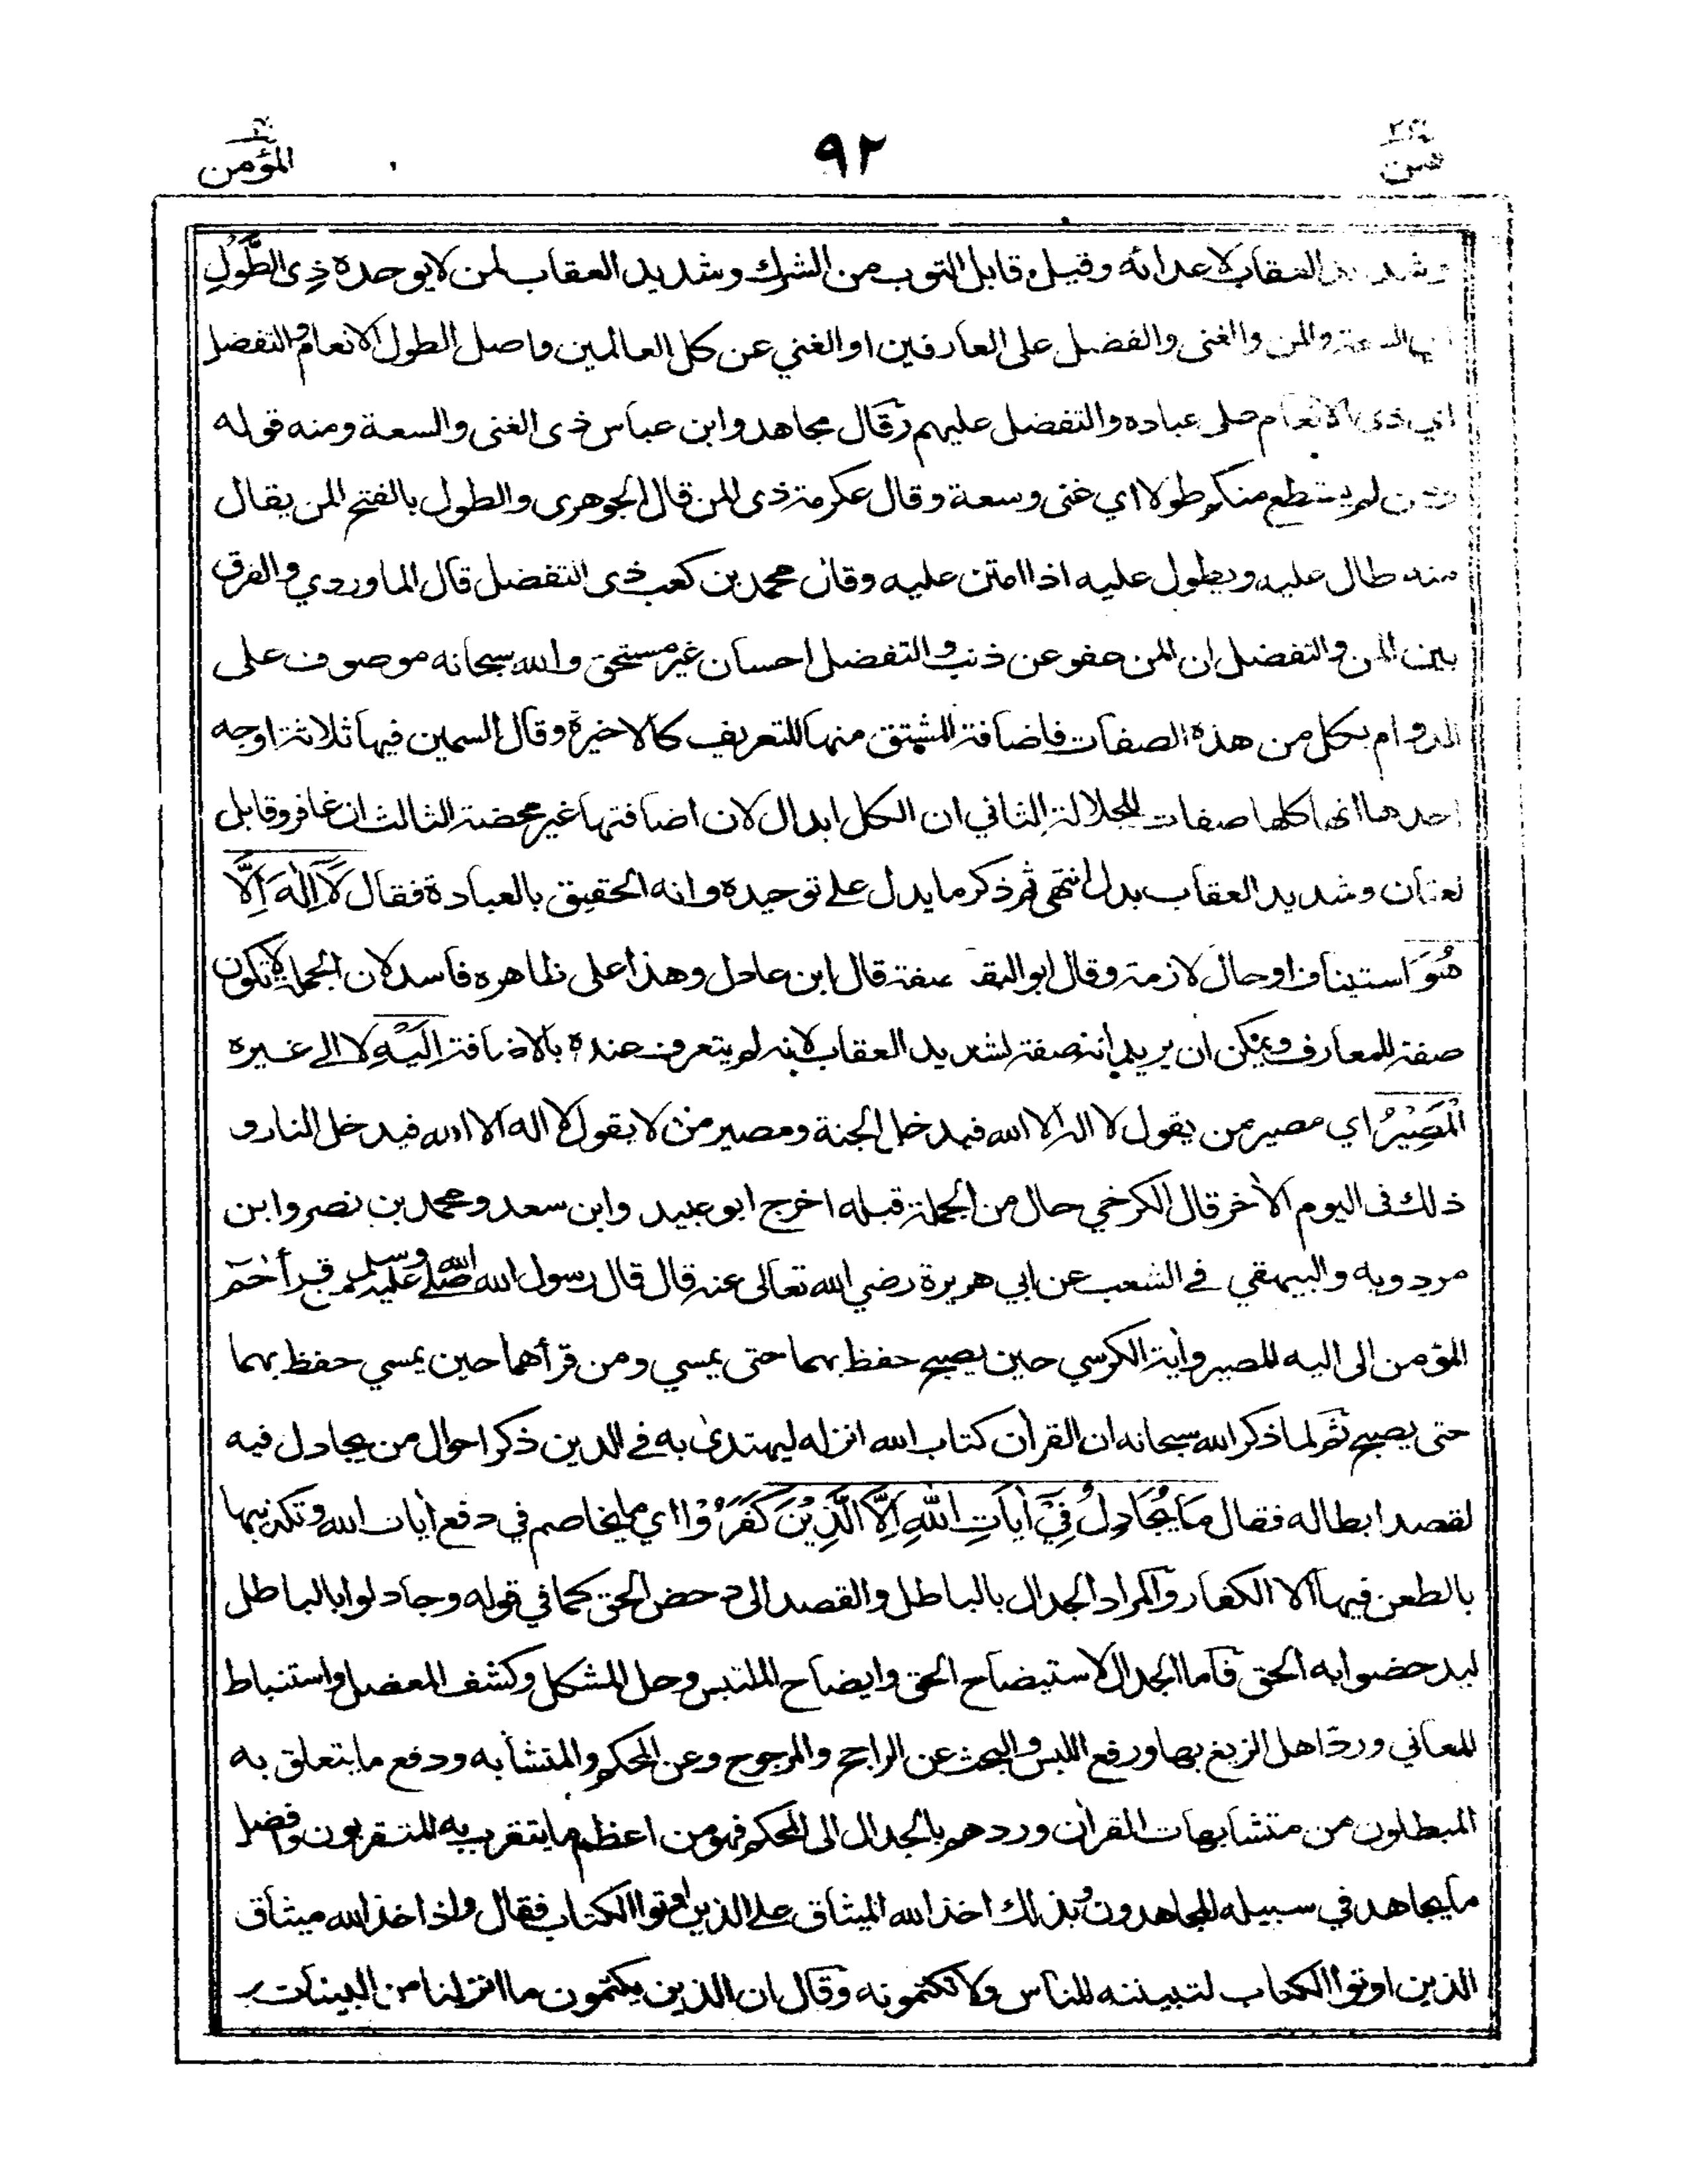 المؤمن
٩٢
وشديد العقاب لاعدائه وقيل وقابل التوب من الشرك وشديد العقاب لمن لا يوحده ذِى الطَّوْلِ
السعة والمن والغنى والفضل على العارفين او الغني عن كل العالمين واصل الطول الانعام والتفضل
اي ذى الانعام على عباده والتفضل عليهم وقال مجاهد وابن عباس ذى الغنى والسعة ومنه قوله
ومن لم يستطع منكم طولا اي غنى وسعة وقال عكرمة ذى المن قال الجوهرى والطول بالفتح المن يقال
منه طال عليه ويطول عليه اذا امتن عليه وقال محمد بن كعب ذى التفضل قال الماوردي والفرق
بين المن والتفضل ان المن عفو عن ذنب والتفضل احسان غير مستحق والله سبحانه موصوف على
الدوام بكل من هذه الصفات فاضافة المشتق منها للتعريف كالاخيرة وقال السمين فيها ثلاثة اوجه
احدها انها كلها صفات للجلالة الثاني ان الكل ابدال لان اضافتها غير محضة الثالث ان غافر وقابل
نعتان وشديد العقاب بدل انتهى ثم ذكر ما يدل على توحيده وانه الحقيق بالعبادة فقال لَآ اِلٰهَ اِلَّا
هُوَ استيناف او حال لازمة وقال ابو البقاء صفة قال ابن عادل وهذا على ظاهره فاسد لان الجملة لا تكون
صفة للمعارف ويمكن ان يريد انه صفة لشديد العقاب لانه لم يتعرف عنده بالاضافة اِلَيْهِ لا الى غيره
الْمَصِيْرُ اي مصير من يقول لا اله الا الله فيدخل الجنة ومصير من لا يقول لا اله الا الله فيدخل النار و
ذلك فى اليوم الأخر قال الكرخي حال من الجملة قبله اخرج ابو عبيد وابن سعد ومحمد بن نصر وابن
مردويه والبيهقي في الشعب عن ابي هريرة رضي الله تعالى عنه قال قال رسول الله صلى الله عليه وسلم من قرأ حٰمٓ
المؤمن الى اليه المصير وأية الكرسي حين يصبح حفظ بهما حتى يمسي ومن قرأهما حين يمسي حفظ بهما
حتى يصبح ثم لما ذكر الله سبحانه ان القرأن كتاب الله انزله ليهتدى به في الدين ذكر احوال من يجادل فيه
لقصد ابطاله فقال مَا يُجَادِلُ فِيْٓ اٰيَاتِ اللهِ اِلَّا الَّذِيْنَ كَفَرُوْا اي ما يخاصم في دفع أيات الله وتكذيبها
بالطعن فيها الا الكفار والمراد الجدال بالباطل والقصد الى دحض الحق كما في قوله وجادلوا بالباطل
ليدحضوا به الحق فاما الجدال لاستيضاح الحق وايضاح الملتبس وحل المشكل وكشف المعضل واستنباط
المعاني ورد اهل الزيغ بها ورفع اللبس والبحث عن الراجح والمرجوح وعن المحكم والمتشابه ودفع ما يتعلق به
المبطلون من متشابهات القرأن وردهم بالجدال الى المحكم فهو من اعظم ما يتقرب به المتقربون وافضل
ما يجاهد في سبيله المجاهدون وبذلك اخذ الله الميثاق على الذين اوتوا الكتاب فقال واذ اخذ الله ميثاق
الذين اوتوا الكتاب لتبيننه للناس ولا تكتمونه وقال ان الذين يكتمون ما انزلنا من البينات